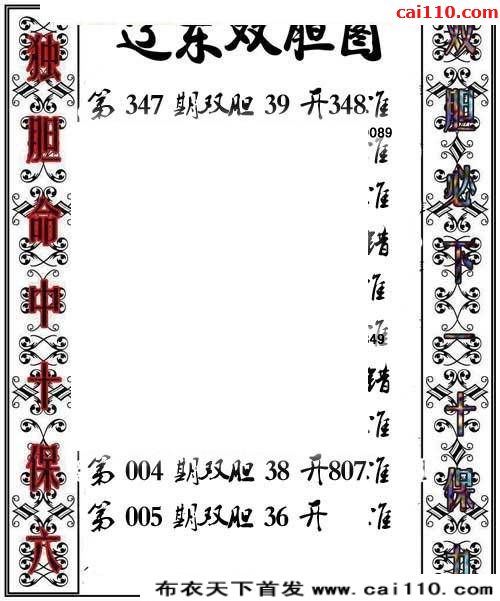 cai110.com
辽东双胆图
独胆命中十保六
双胆必下一十保九
第 347 期双胆 39 开348准
0089
准
准
错
准
准
49
错
准
第 004 期双胆 38 开807准
第 005 期双胆 36 开 准
布衣天下首发 www.cai110.com